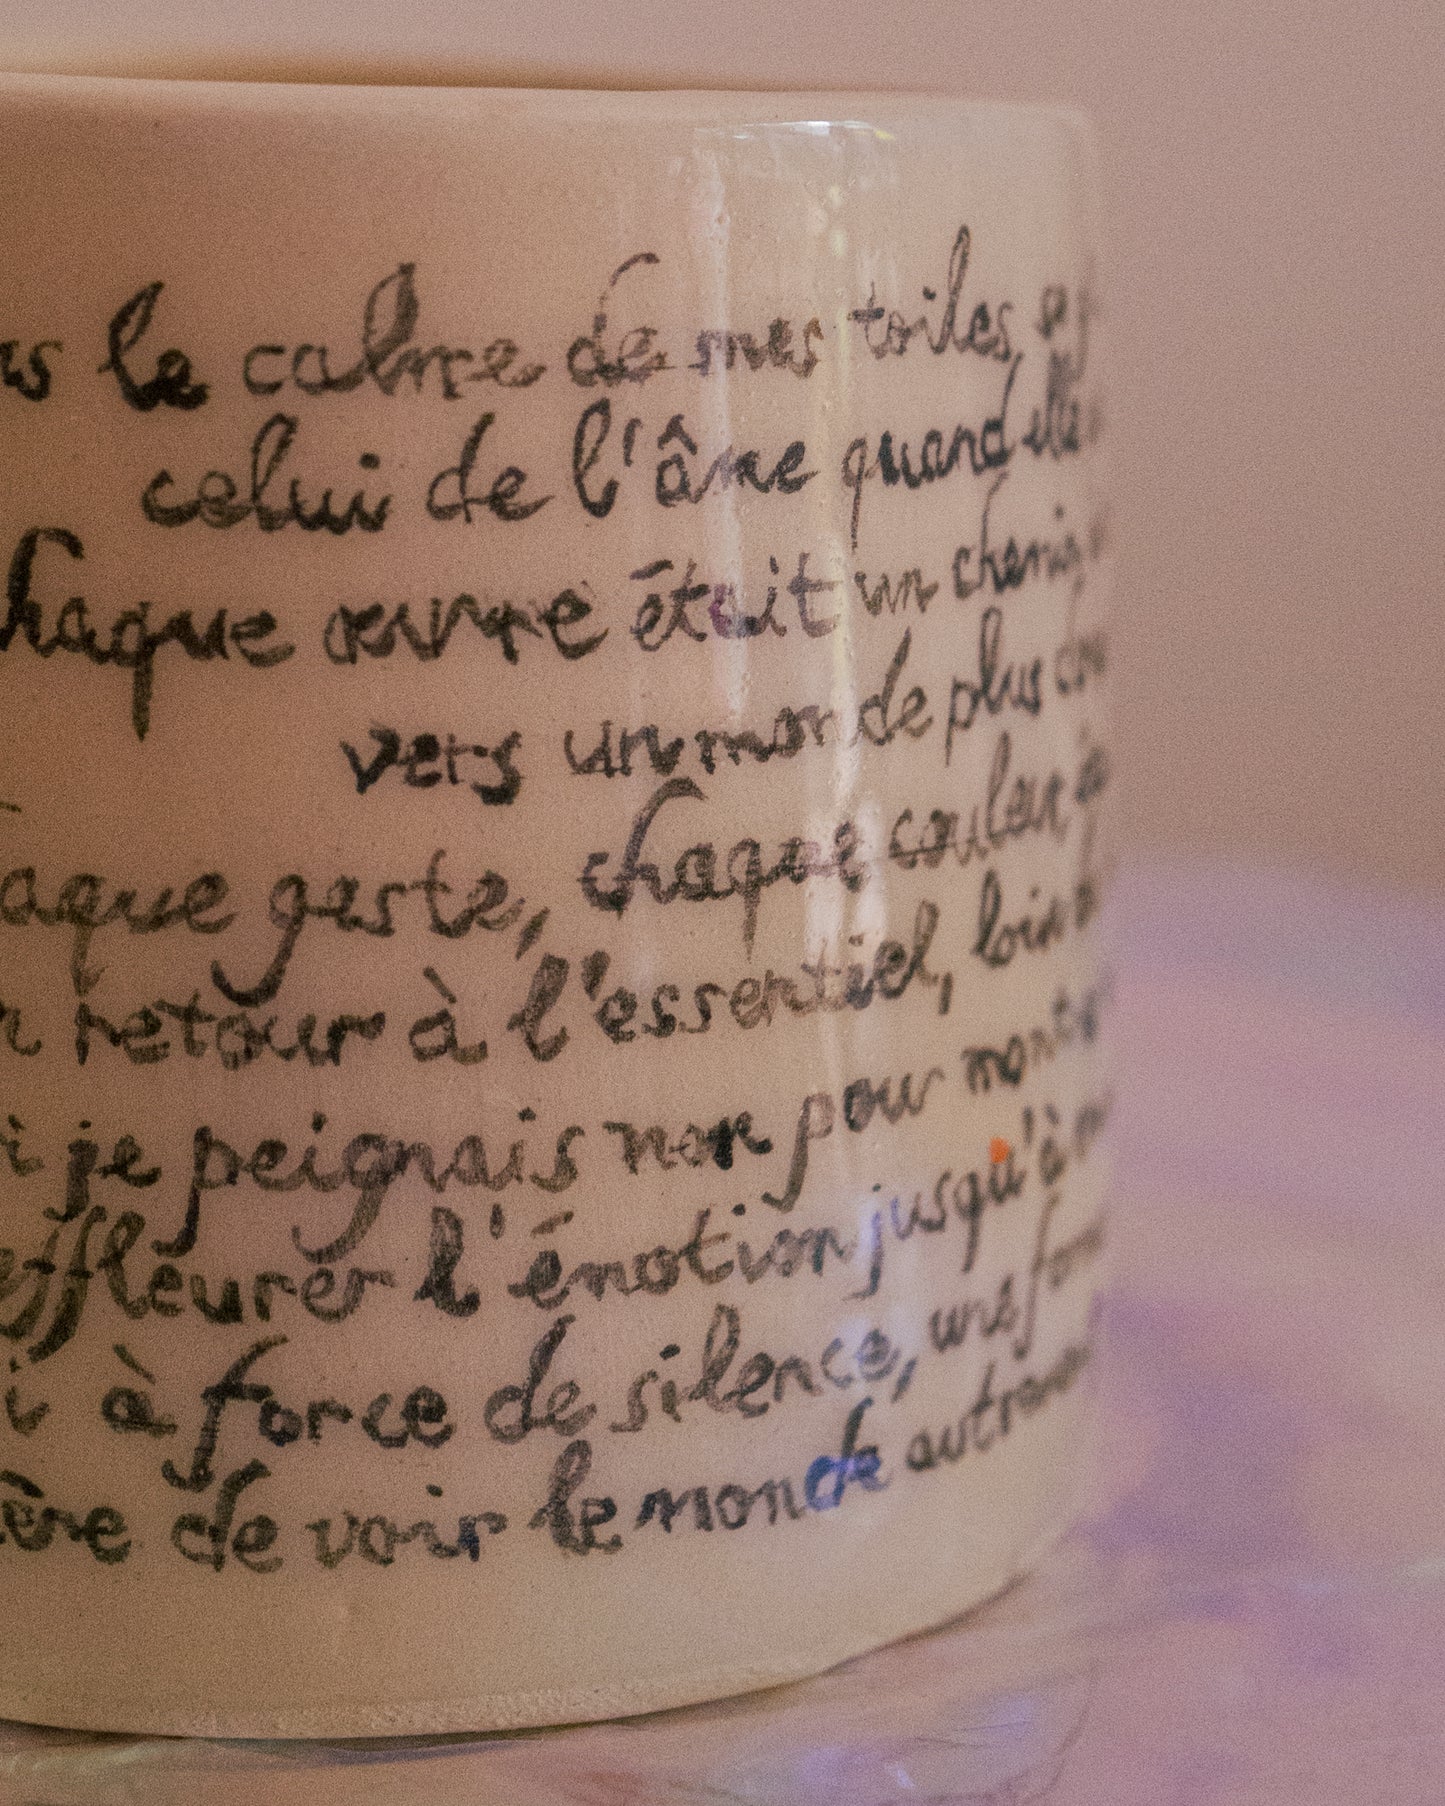 le calme de mes toiles,
celui de l'âme quand elle
chaque œuvre était un
vers un monde plus
geste, chaque couleur
retour à l'essentiel, loin
je peignais non pour
effleurer l'émotion jusqu'à
à force de silence, une
de voir le monde